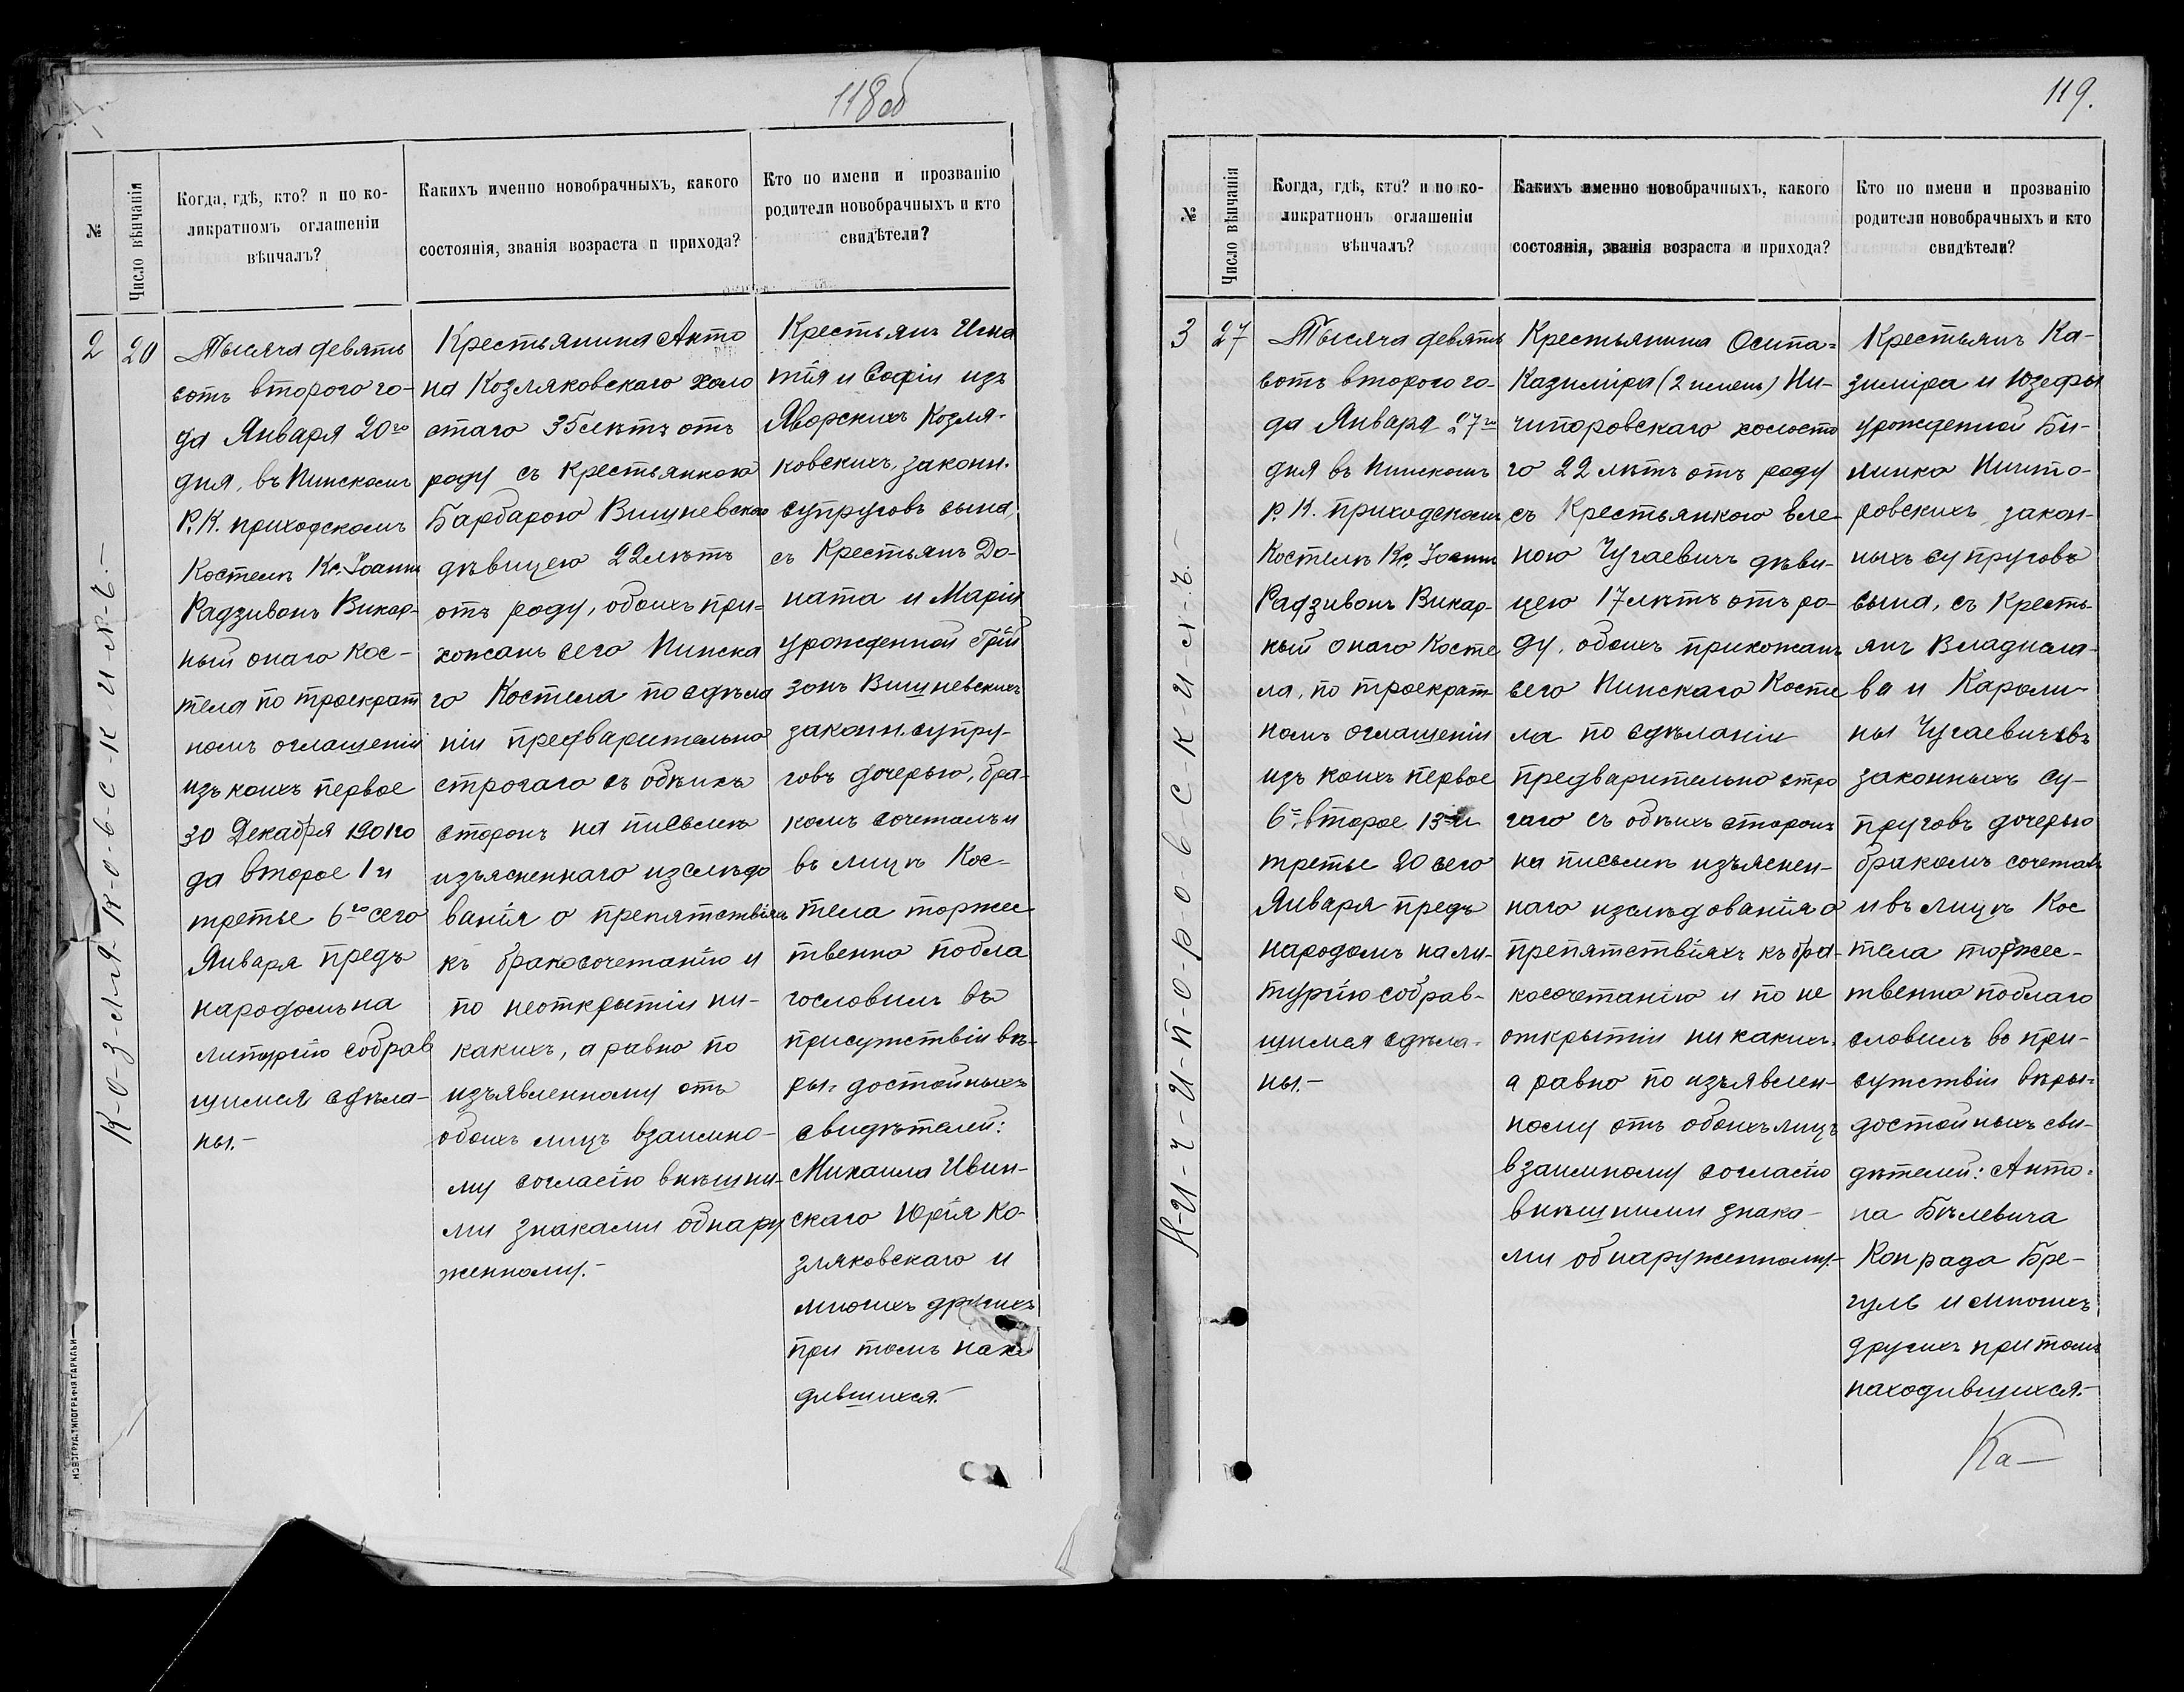 118об
№
Число вѣнчанія
Когда, гдѣ, кто? и по ко-
ликратномъ оглашеніи
вѣнчалъ?
Какихъ именно новобрачныхъ, какого
состоянія, званія возраста и прихода?
Кто по имени и прозванію
родители новобрачныхъ и кто
свидѣтели?
2
20
К-о-з-л-я-к-о-в-с-к-и-х-ъ.-
Тысяча девять
сотъ второго го-
да Января 20го
дня, въ Пинскомъ
Р. К. приходскомъ
Костелѣ Кс. Іоаннъ
Радзивонъ Викар-
ный онаго Кос-
тела по троекрат
номъ оглашеніи
изъ коихъ первое
30 Декабря 1901 го
да второе 1 и
третье 6го сего
Января предъ
народомъ на
литургію собрав
шимся сдѣла-
ны.-
Крестьянина Анто
на Козляковскаго холо
стаго 35 лѣтъ отъ
роду съ Крестьянкою
Барбарою Вишневскою
дѣвицею 22 лѣтъ
отъ роду, обоихъ при-
хожанъ сего Пинска
го Костела по сдѣла
ніи предварительно
строгаго съ обѣихъ
сторонъ на письмѣ
изъясненнаго изслѣдо
ванія о препятствіяхъ
къ бракосочетанію и
по неоткрытіи ни-
какихъ, а равно по
изъявленному отъ
обоихъ лицъ взаимно-
му согласію внѣшни-
ми знаками обнару
женному.-
Крестьянъ Игна
тія и Софіи изъ
Яворскихъ Козля-
ковскихъ, законн.
супруговъ сына,
съ Крестьянъ До-
ната и Маріи
урожденной Грій
зонъ Вишневскихъ
законн. супру-
говъ дочерью, бра-
комъ сочеталъ и
въ лицѣ Кос-
тела торжес
твенно побла
гословилъ въ
присутствіи вѣ-
ры-достойныхъ
свидѣтелей:
Михаила Ивин-
скаго Юрія Ко-
зляковскаго и
многихъ другихъ
при томъ нахо
дившихся.-
НОВОГРУД. ТИПОГРАФІЯ ГАРКАВИ
119.
№
Число вѣнчанія
Когда, гдѣ, кто? и по ко-
ликратномъ оглашеніи
вѣнчалъ?
Какихъ именно новобрачныхъ, какого
состоянія, званія возраста и прихода?
Кто по имени и прозванію
родители новобрачныхъ и кто
свидѣтели?
3
27
Н-и-ч-и-п-о-р-о-в-с-к-и-х-ъ.-
Тысяча девять
сотъ второго го-
да Января 27го
дня въ Пинскомъ
Р. К. приходскомъ
Костелѣ Кс. Іоаннъ
Радзивонъ Викар-
ный онаго Косте
ла, по троекрат-
номъ оглашеніи
изъ коихъ первое
6го, второе 13го и
третье 20 сего
Января предъ
народомъ на ли-
тургію собрав-
шимся сдѣла-
ны.-
Крестьянина Осипа-
Казиміра (2 именъ) Ни-
чипоровскаго холосто
го 22 лѣтъ отъ роду
съ Крестьянкою Еле-
ною Чугаевичъ дѣви-
цею 17 лѣтъ отъ ро-
ду, обоихъ прихожанъ
сего Пинскаго Косте
ла по сдѣланіи
предварительно стро
гаго съ обѣихъ сторонъ
на письмѣ изъяснен-
наго изслѣдованія о
препятствіяхъ къ бра-
косочетанію и по не
открытіи никакихъ.
а равно по изъявлен-
ному отъ обоихъ лицъ
взаимному согласію
внѣшними знака-
ми обнаруженному.-
Крестьянъ Ка-
зиміра и Юзефы
урожденной Би-
ровскихъ закон-
ныхъ супруговъ
сына, съ Кресть-
янъ Владисла-
ва и Кароли-
ны Чугаевичевъ
законныхъ су-
пруговъ дочерью
бракомъ сочеталъ
и въ лицѣ Кос
тела торжес-
твенно поблаго
словилъ въ при-
сутствіи вѣры-
достойныхъ сви-
дѣтелей: Анто-
на Бѣлевича
Конрада Бре-
гуль и многихъ
другихъ при томъ
находившихся.-
Ка-